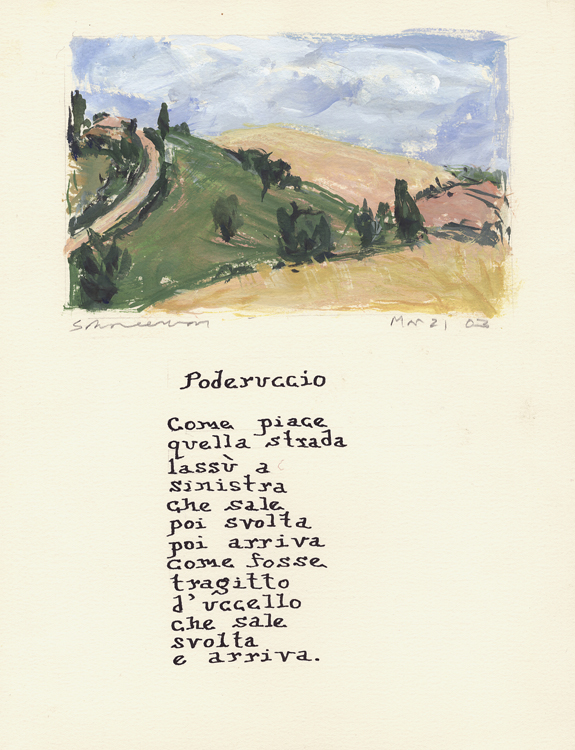 Mar 21 03
Poderuccio
Come piace
quella strada
lassù a
sinistra
che sale
poi svolta
poi arriva
come fosse
tragitto
d'uccello
che sale
svolta
e arriva.